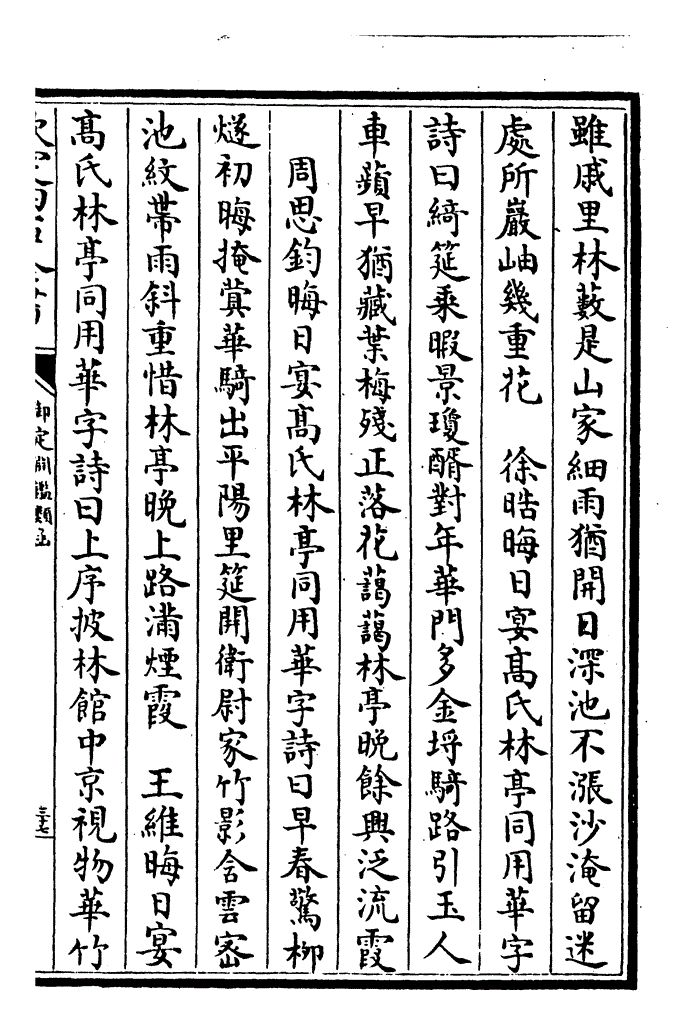 雖戚里林藪是山家細雨猶開日深池不漲沙淹留迷
處所巖岫幾重花　徐皓晦日宴髙氏林亭同用華字
詩曰綺筵乗暇景瓊醑對年華門多金埒騎路引玉人
車蘋早猶藏葉梅殘正落花藹藹林亭晚餘興泛流霞
周思鈞晦日宴髙氏林亭同用華字詩曰早春驚柳
燧初晦掩蓂華騎出平陽里筵開衛尉家竹影含雲密
池紋帶雨斜重惜林亭晚上路滿煙霞　王維晦日宴
髙氏林亭同用華字詩曰上序披林館中京視物華竹
御定淵鑑類函
三十七